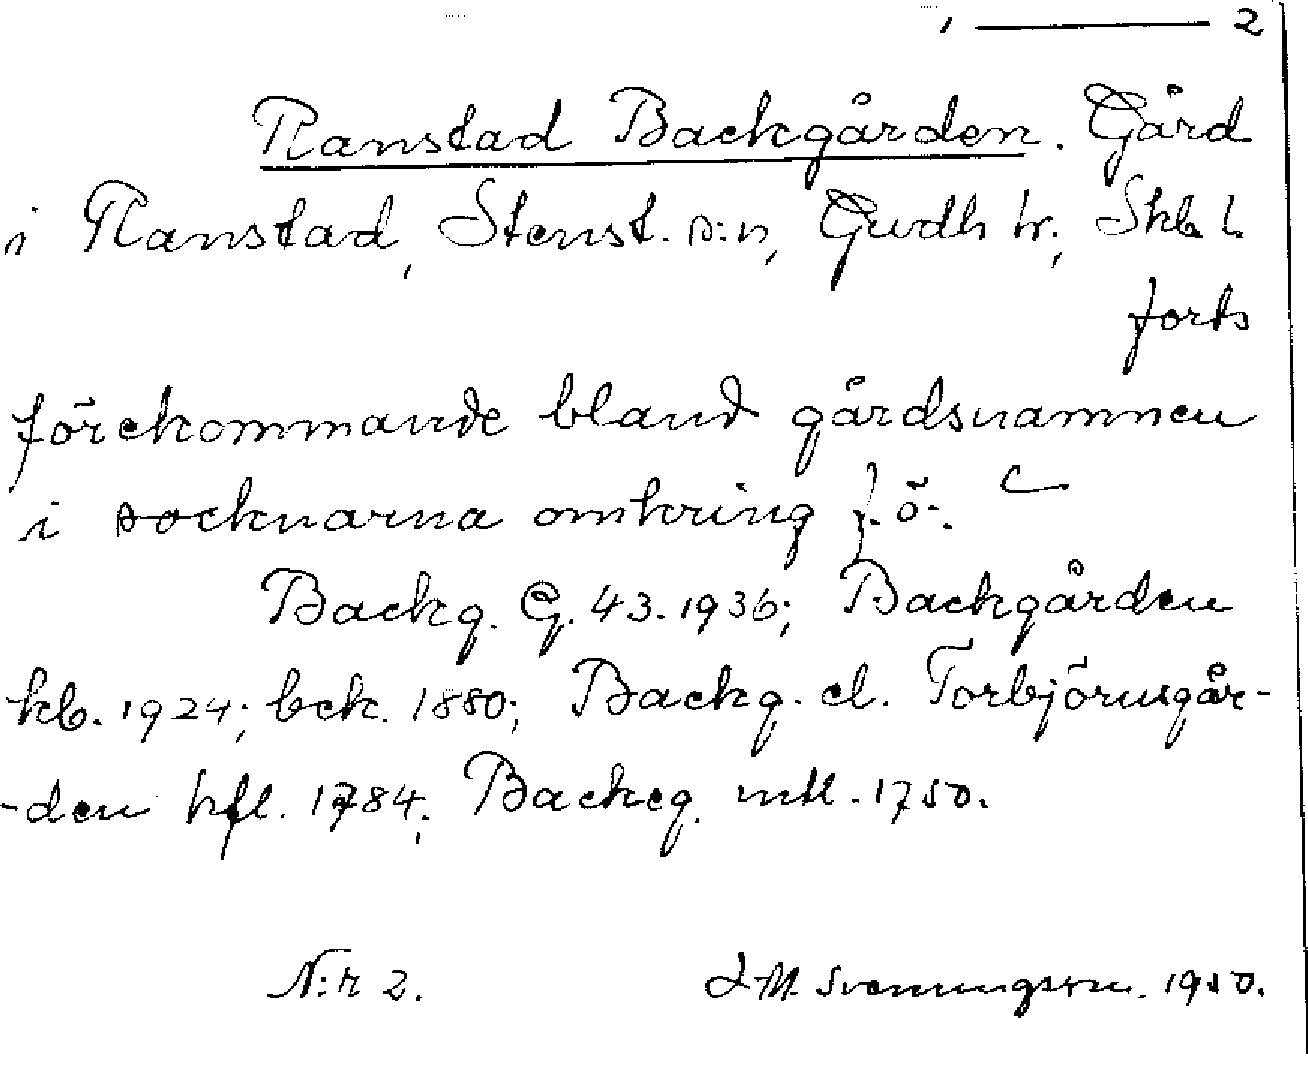 , —— 2
Ranstad Backgården. Gård
i Ranstad, Stenst. s:n, Gudh hr., Skb l.
forts
förekommande bland gårdsnamnen
i socknarna omkring f. ö.
Backg. G. 43. 1936; Backgården
kb. 1924; bek. 1880; Backg. el. Torbjörnsgår-
-den hfl. 1784; Backeg. mtl. 1750.
N:r 2. Svenningson. 1950.